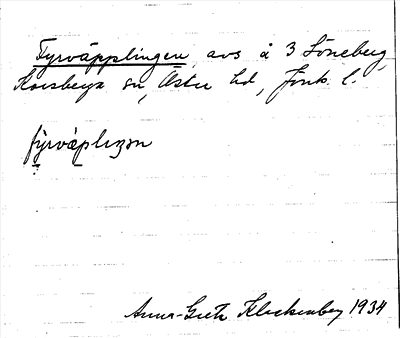 Fyrväpplingen avs å 3 Löneberg,
Korsberga sn, Östra hd, Jönk. l.
fy̤rvæ̤plıŋən
Anna-Greta Kleckenberg 1934